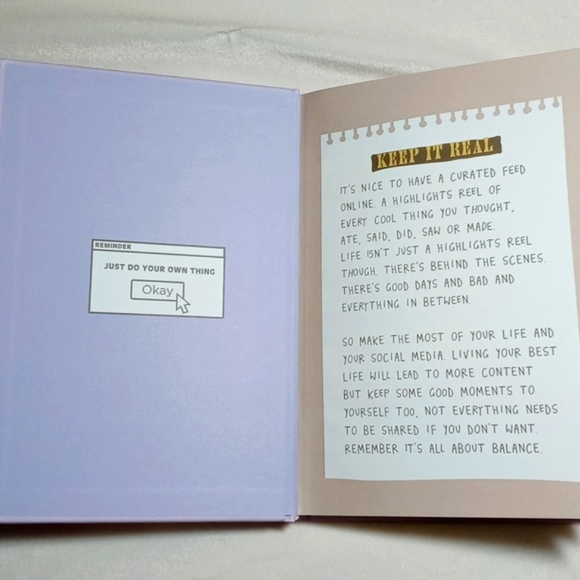 REMINDER
JUST DO YOUR OWN THING
Okay
KEEP IT REAL
IT'S NICE TO HAVE A CURATED FEED
ONLINE. A HIGHLIGHTS REEL OF
EVERY COOL THING YOU THOUGHT,
ATE, SAID, DID, SAW OR MADE.
LIFE ISN'T JUST A HIGHLIGHTS REEL
THOUGH. THERE'S BEHIND THE SCENES.
THERE'S GOOD DAYS AND BAD AND
EVERYTHING IN BETWEEN.
SO MAKE THE MOST OF YOUR LIFE AND
YOUR SOCIAL MEDIA. LIVING YOUR BEST
LIFE WILL LEAD TO MORE CONTENT
BUT KEEP SOME GOOD MOMENTS TO
YOURSELF TOO, NOT EVERYTHING NEEDS
TO BE SHARED IF YOU DON'T WANT.
REMEMBER IT'S ALL ABOUT BALANCE.